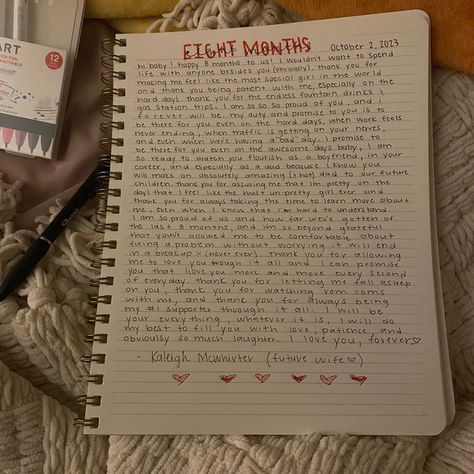 ART
12
EIGHT MONTHS
October 2, 2023
hi baby! happy 8 months to us! I wouldn't want to spend
life with anyone besides you (obviously). thank you for
making me feel like the most special girl in the world
and thank you being patient with me, especially on the
hard days. thank you for the endless fountain drinks &
gas station trips. I am so so so proud of you, and I
forever will be. my duty and promise to you is to
be there for you even on the hard days, when work feels
never ending, when traffic is getting on your nerves,
and even when were having a bad day. I promise to
be there for you even on the awesome days baby, I am
so ready to watch you flourish as a boyfriend, in your
career, and especially as a dad because I know you
will make an absolutely amazing (& hot) dad to our future
children. thank you for assuring me that im pretty on the
days that I feel like the most un-pretty girl ever. and
thank you for always taking the time to learn more about
me, even when I know that I'm hard to understand.
I am so proud of us and how far we've gotten of
the last 8 months, and im so beyond grateful
that you've allowed me to be comfortable about
fixing a problem without worrying it will end
in a breakup (never ever). thank you for allowing
me to love you through it all and I can promise
you that I love you more and more every second
of everyday. thank you for letting me fall asleep
on you, thank you for watching rom coms
with me, and thank you for always being
my #1 supporter through it all. I will be
your everything, whatever it is, I will do
my best to fill you with love, patience, and
obviously so much laughter. I love you, forever♡
- Kaleigh McWhirter (future wife♡)